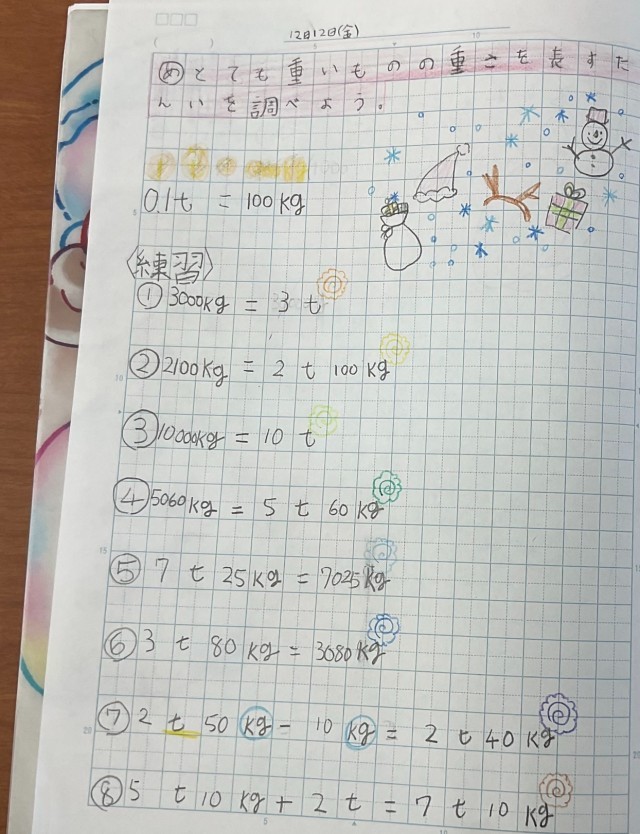 12月12日(金)
めとても重いものの重さを表すた
んいを調べよう。
0.1t = 100kg
〈練習〉
①3000kg = 3 t
②2100kg = 2 t 100 kg
③10000kg = 10 t
④5060kg = 5 t 60kg
⑤ 7 t 25kg = 7025kg
⑥ 3 t 80 kg = 3080kg
⑦ 2 t 50 kg - 10 kg = 2 t 40 kg
⑧ 5 t 10 kg + 2 t = 7 t 10 kg